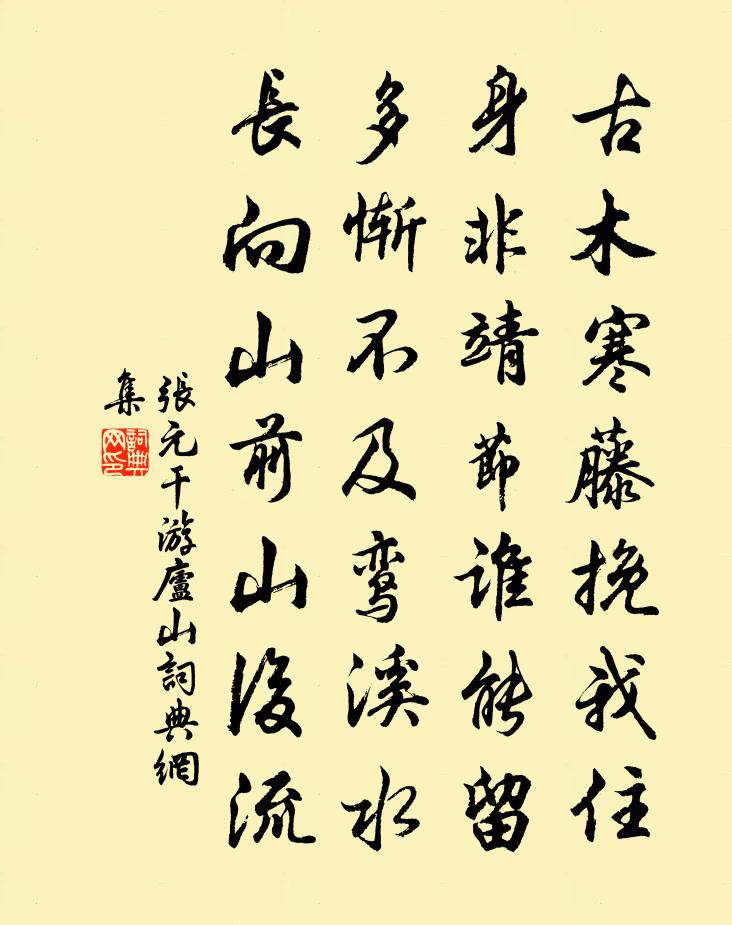 古木寒藤挽我住
身非靖節誰能留
多慚不及鸾溪水
長向山前山後流
張元干游廬山詞典網
集
詞典
网印